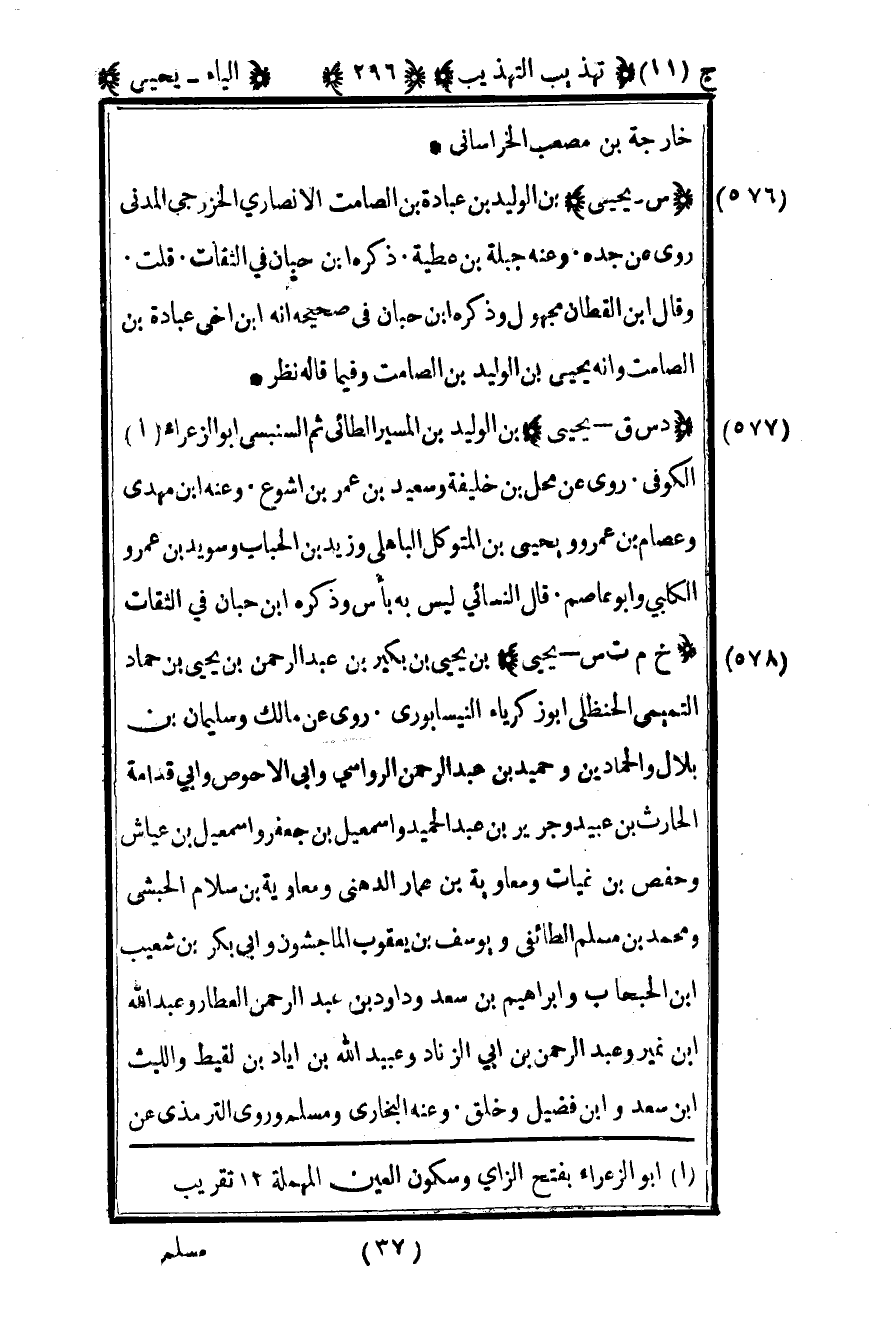 ج (١١) ﴿ تهذيب التهذيب ﴾ ﴿ ٢٩٦ ﴾ ﴿ الياء ـ يحيى ﴾
خارجة بن مصعب الخراسانى •
(٥٧٦) ﴿ س ـ يحيى ﴾ بن الوليد بن عبادة بن الصامت الانصاري الخزرجى المدنى
روى عن جده · وعنه جبلة بن عطية · ذكره ابن حبان في الثقات · قلت ·
وقال ابن القطان مجهول وذكره ابن حبان فى صحيحه انه ابن اخى عبادة بن
الصامت وانه يحيى بن الوليد بن الصامت وفيما قاله نظر •
(٥٧٧) ﴿ د س ق — يحيى ﴾ بن الوليد بن المسير الطائى ثم السنبسى ابو الزعراء (١)
الكوفى · روى عن محل بن خليفة وسعيد بن عمر بن اشوع · وعنه ابن مهدى
وعصام بن عمرو ويحيى بن المتوكل الباهلى وزيد بن الحباب وسويد بن عمرو
الكلبي وابو عاصم · قال النسائي ليس به بأس وذكره ابن حبان في الثقات
(٥٧٨) ﴿ خ م ت س — يحيى ﴾ بن يحيى بن بكير بن عبد الرحمن بن يحيى بن حماد
التميمى الحنظلى ابو زكرياء النيسابورى · روى عن مالك وسليمان بن
بلال والحمادين وحميد بن عبد الرحمن الرواسي وابى الاحوص وابي قدامة
الحارث بن عبيد وجرير بن عبد الحميد واسمعيل بن جعفر واسمعيل بن عياش
وحفص بن غياث ومعاوية بن عمار الدهنى ومعاوية بن سلام الحبشى
ومحمد بن مسلم الطائفى ويوسف بن يعقوب الماجشون وابي بكر بن شعيب
ابن الحبحاب وابراهيم بن سعد وداود بن عبد الرحمن العطار وعبد الله
ابن نمير وعبد الرحمن بن ابي الزناد وعبيد الله بن اياد بن لقيط والليث
ابن سعد وابن فضيل وخلق · وعنه البخارى ومسلم وروى الترمذى عن
(١) ابو الزعراء بفتح الزاي وسكون العين المهملة ١٢ تقريب
(٣٧) مسلم